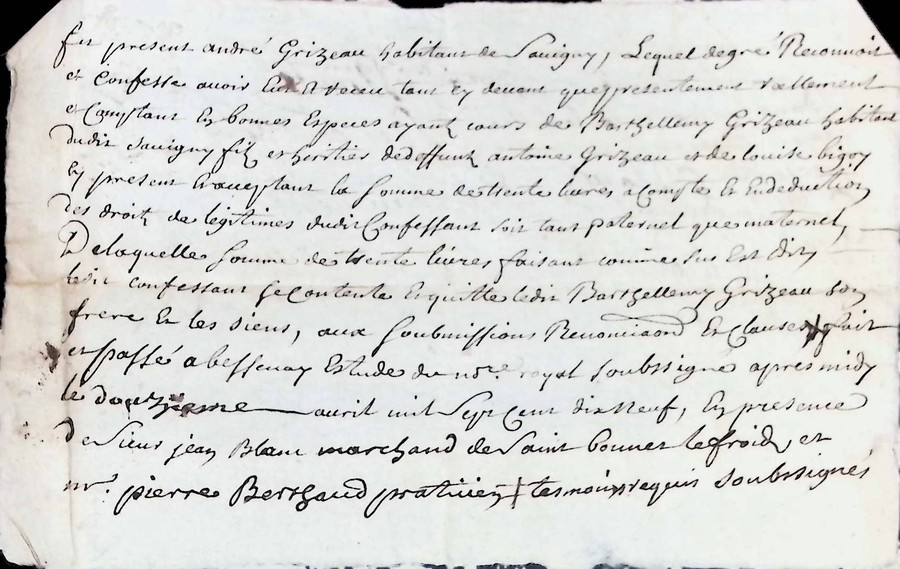 fut present andré Grizeau habitant de Savigny, Lequel de gré Reconnoit
et Confesse avoir Eu et receu tant cy devant que presentement reellement
et Comptant En bonnes Especes ayant cours de Barthellemy Grizeau habitant
dudit Savigny filz et heritier de deffunt antoine Grizeau et de louise bigoy
Cy present Et acceptant la somme de trente livres a compte Et En deduction
des droitz de légitimes dudit Confessant soit tant paternel que maternel,
De laquelle somme de trente livres faisant comme sus Est dit,
ledit confessant se contente Et quitte ledit Barthellemy Grizeau son
frere Et les siens, aux soubmissions Renonciaons Et Clauses fait
et passé a bessenay Estude du nore. royal soubssigne apres midy
le douzieme avril mil Sept Cent dix Neuf, En presence
de Sieur jean Blanc marchand de Saint bonnet le froid, et
mr. pierre Berthaud praticien tesmoins requis soubssignés